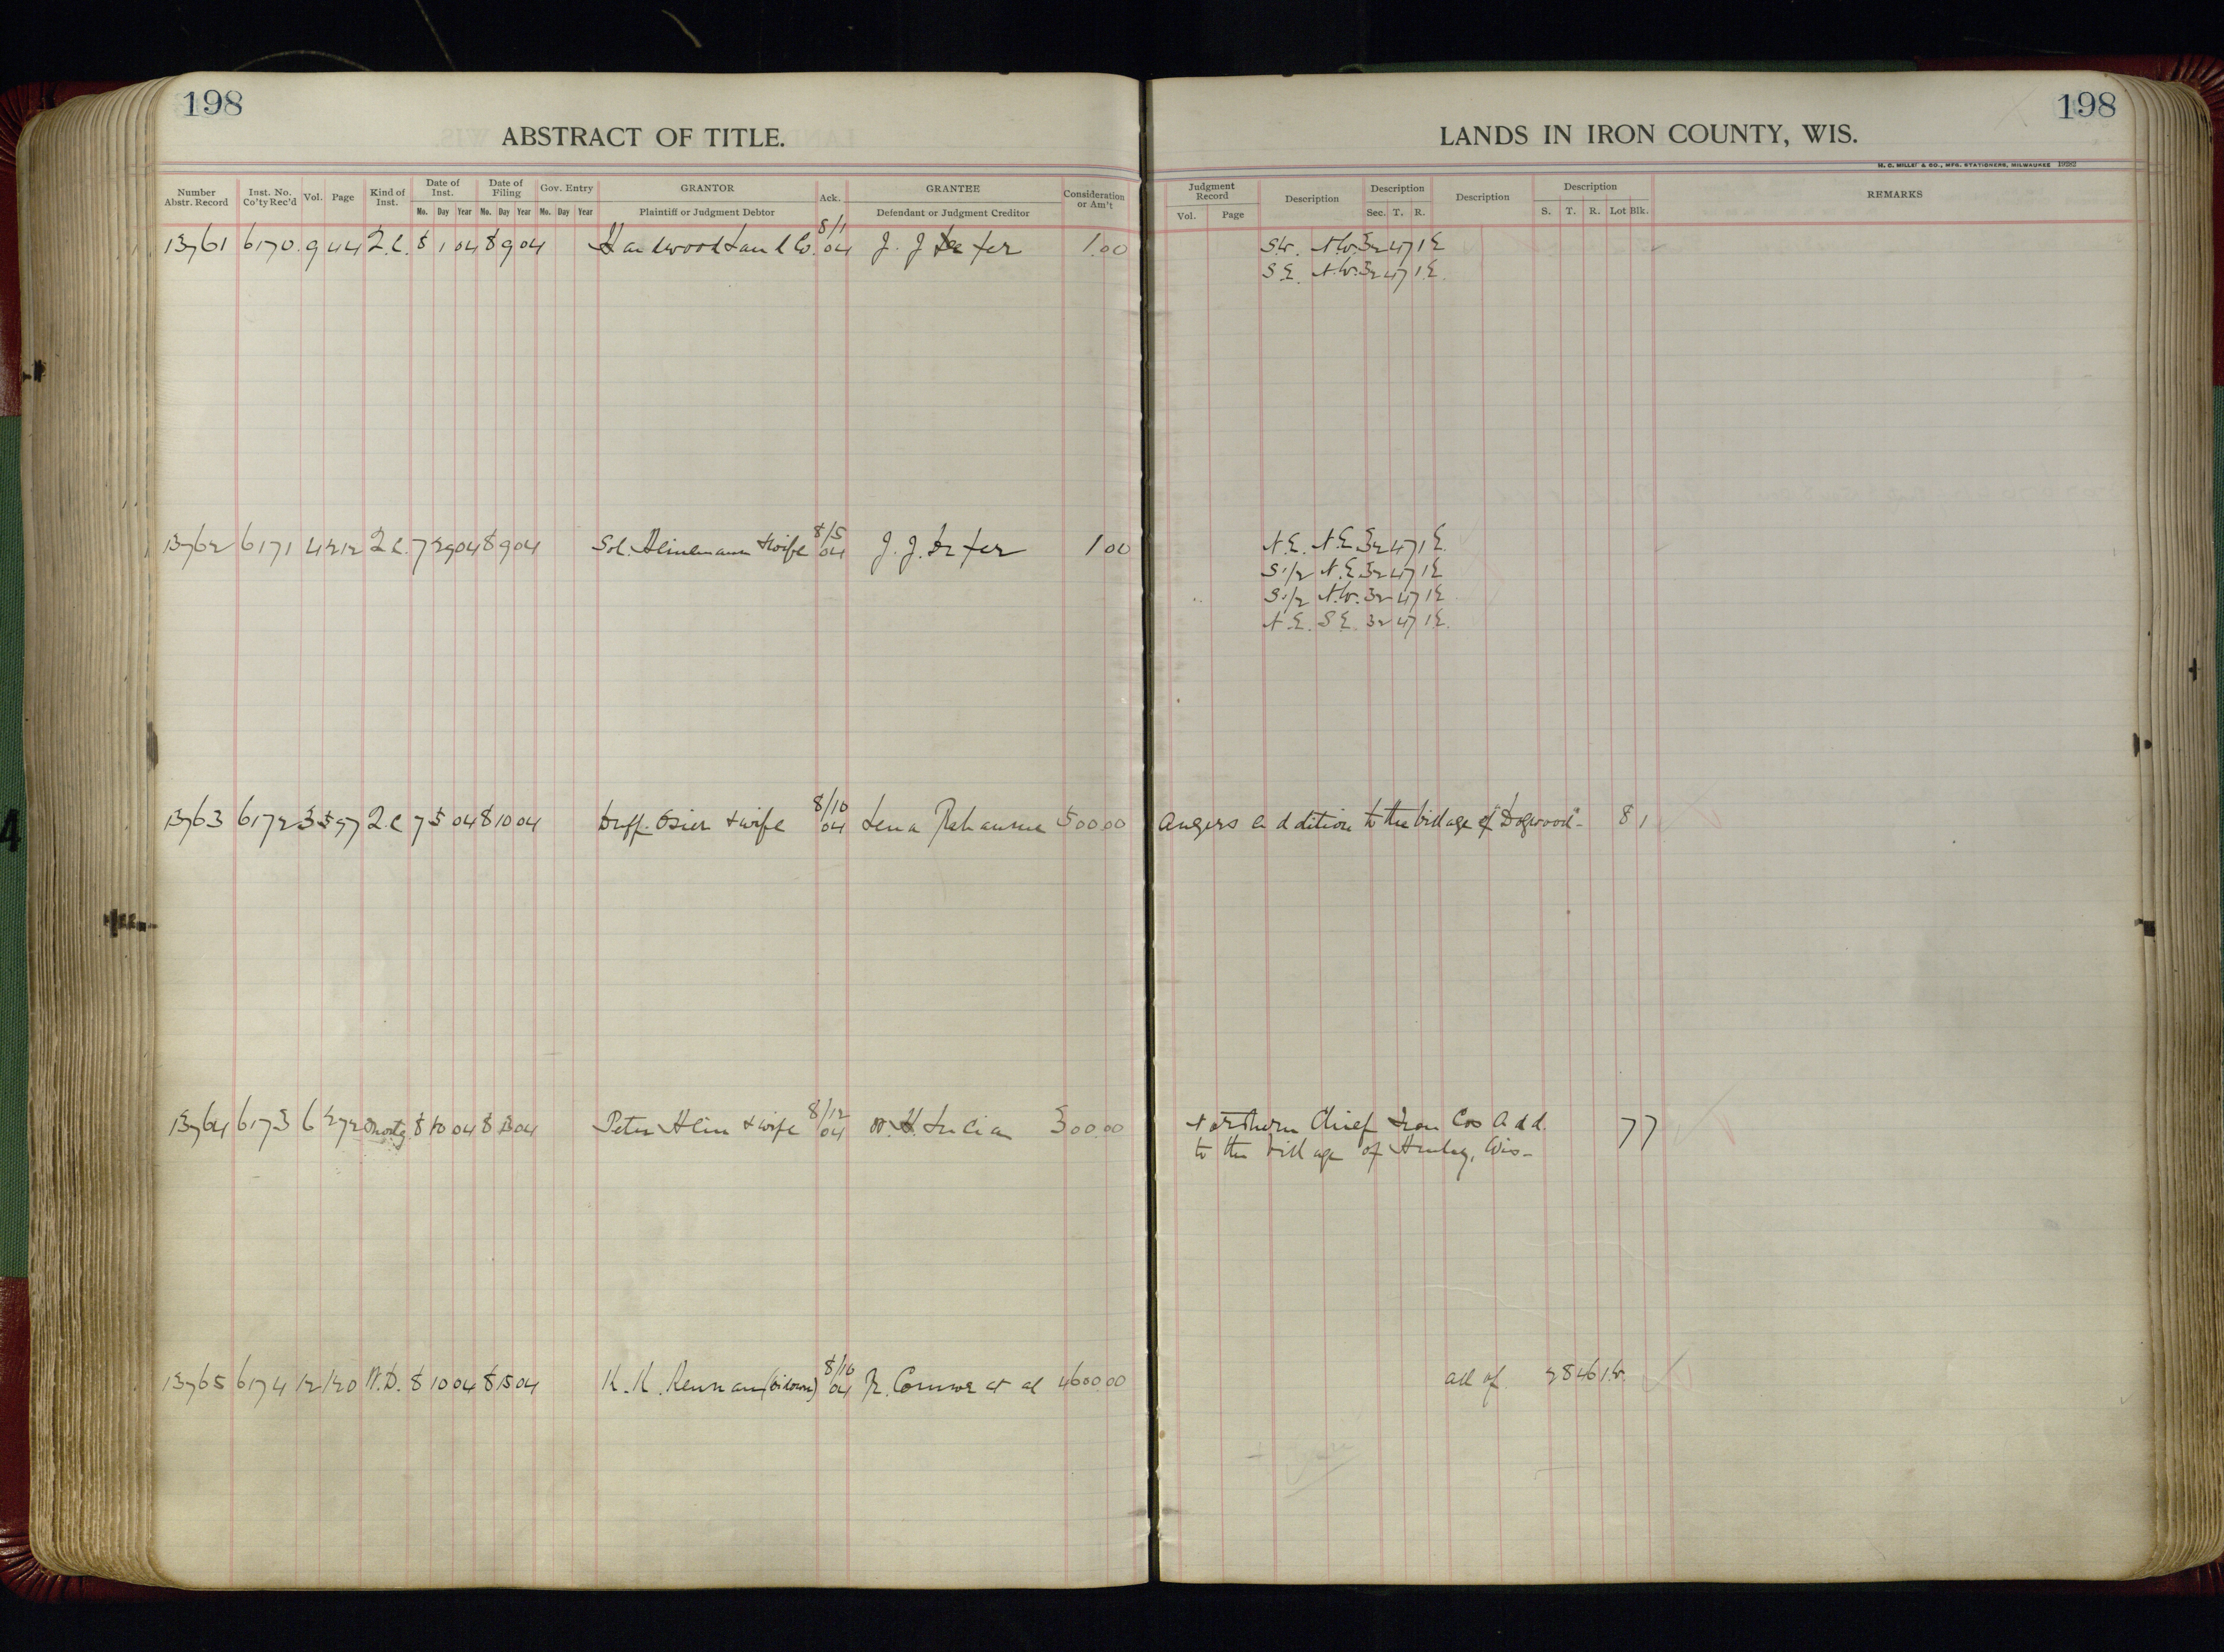 198
198
ABSTRACT OF TITLE.
LANDS IN IRON COUNTY, WIS.
H. C. MILLER & CO., MFG. STATIONERS, MILWAUKEE
Number Abstr. Record Inst. No. Co'ty Rec'd Vol. Page Kind of Inst. Date of Inst. Mo. Day Year Date of Filing Mo. Day Year Gov. Entry Mo. Day Year GRANTOR Plaintiff or Judgment Debtor Ack. GRANTEE Defendant or Judgment Creditor Consideration or Am't
Judgment Record Vol. Page Description Description Sec. T. R. Description Description S. T. R. Lot Blk. REMARKS
13761 6170 9 44 2.C. 8 1 04 8 9 04 Hardwood Land Co. 8/1 04 J. J. 1.00 S.W. N.W. 32 47 1 E
S.E. N.W. 32 47 1 E.
13762 6171 4 212 2.C. 7 29 04 8 9 04 Sol. Heinemann & wife 8/5 04 J. J. 1 00 N.E. N.E. 32 47 1 E.
S. 1/2 N.E 32 47 1 E
S. 1/2 N.W. 32 47 1 E
N.E. S.E. 32 47 1 E.
13763 6172 3 597 2.C 7 5 04 8 10 04 Osier & wife 8/10 04 Lena 500.00 Angers addition to the village of "Dogwood" 8 1
13764 6173 6 272 Mortg. 8 10 04 8 13 04 Peter & wife 8/12 04 300.00 Northern Chief Iron Cos Add. 7 7
to the village of Hurley, Wis-
13765 6174 12 120 W.D. 8 10 04 8 15 04 K. K. Kennan (widower) 8/10 04 R. Connor et al 4600.00 all of 28 46 1 W.